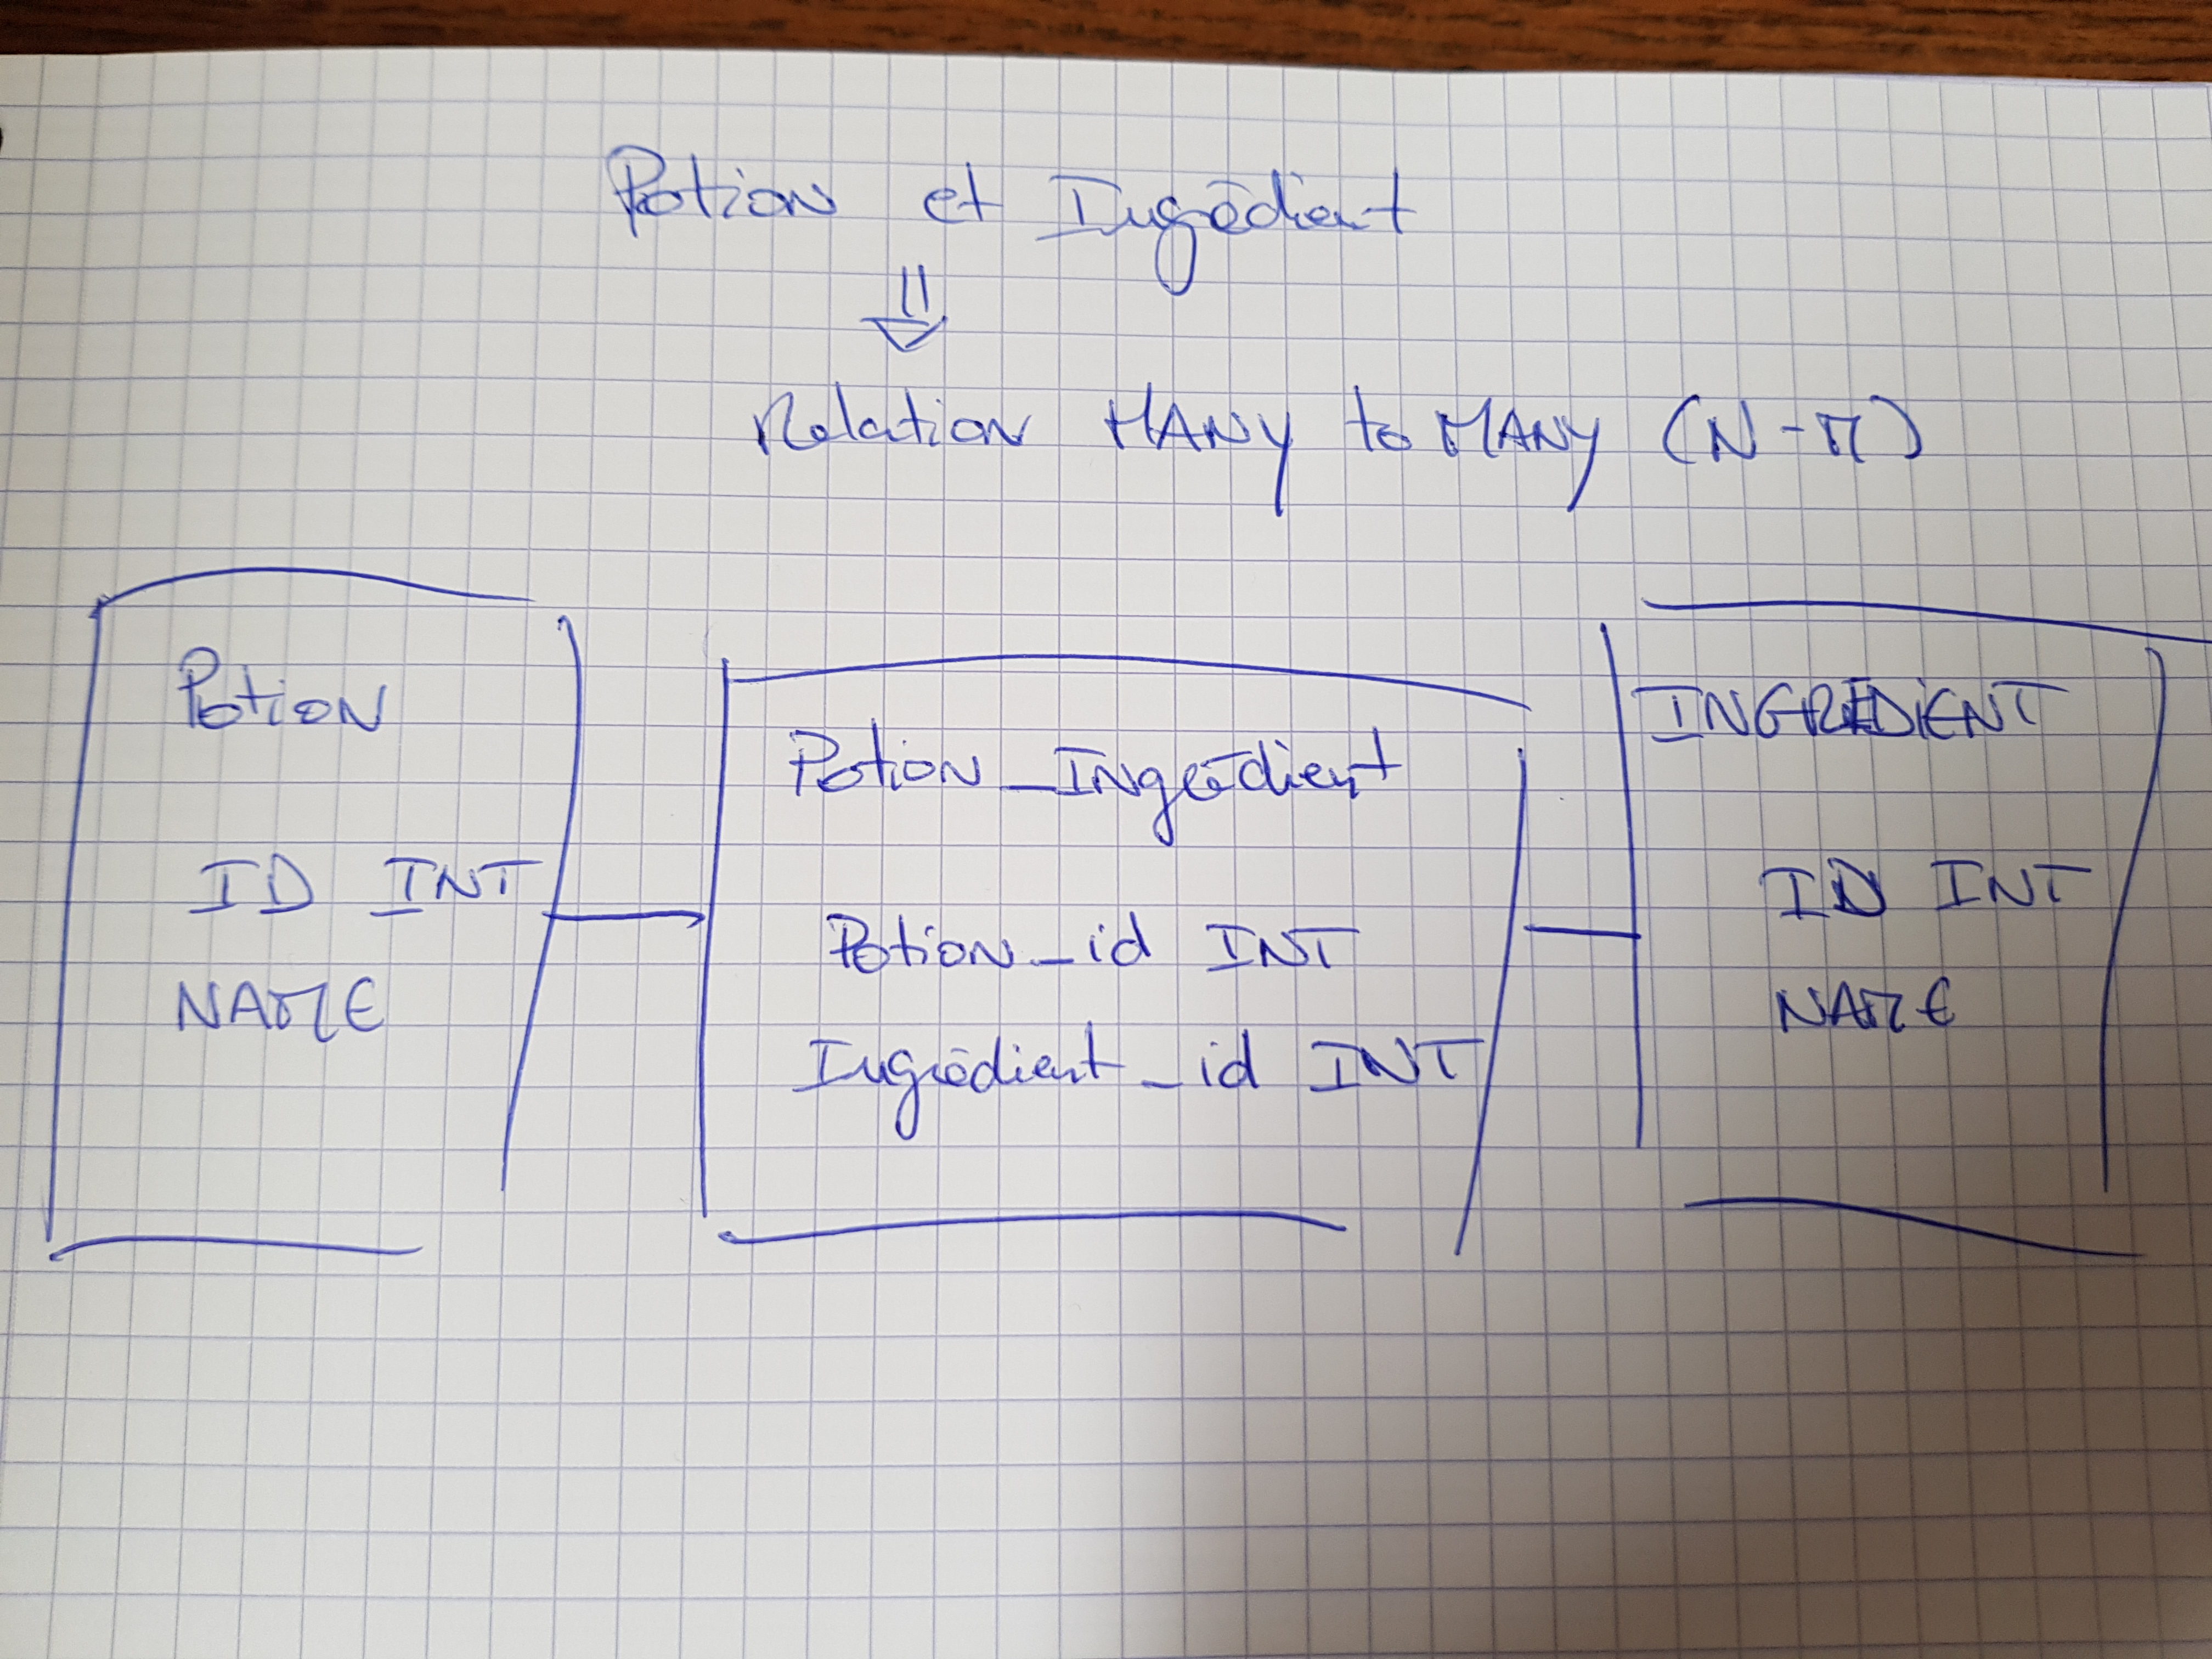 Potion et Ingrédient
Relation MANY to MANY (N-M)
Potion
ID INT
NAME
Potion_Ingrédient
Potion_id INT
Ingrédient_id INT
INGRÉDIENT
ID INT
NAME